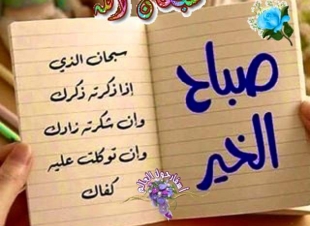 سبحان الله
صباح
الخير
سبحان الذي
إذا ذكرته ذكرك
وان شكرته زادك
وان توكلت عليه
كفاك